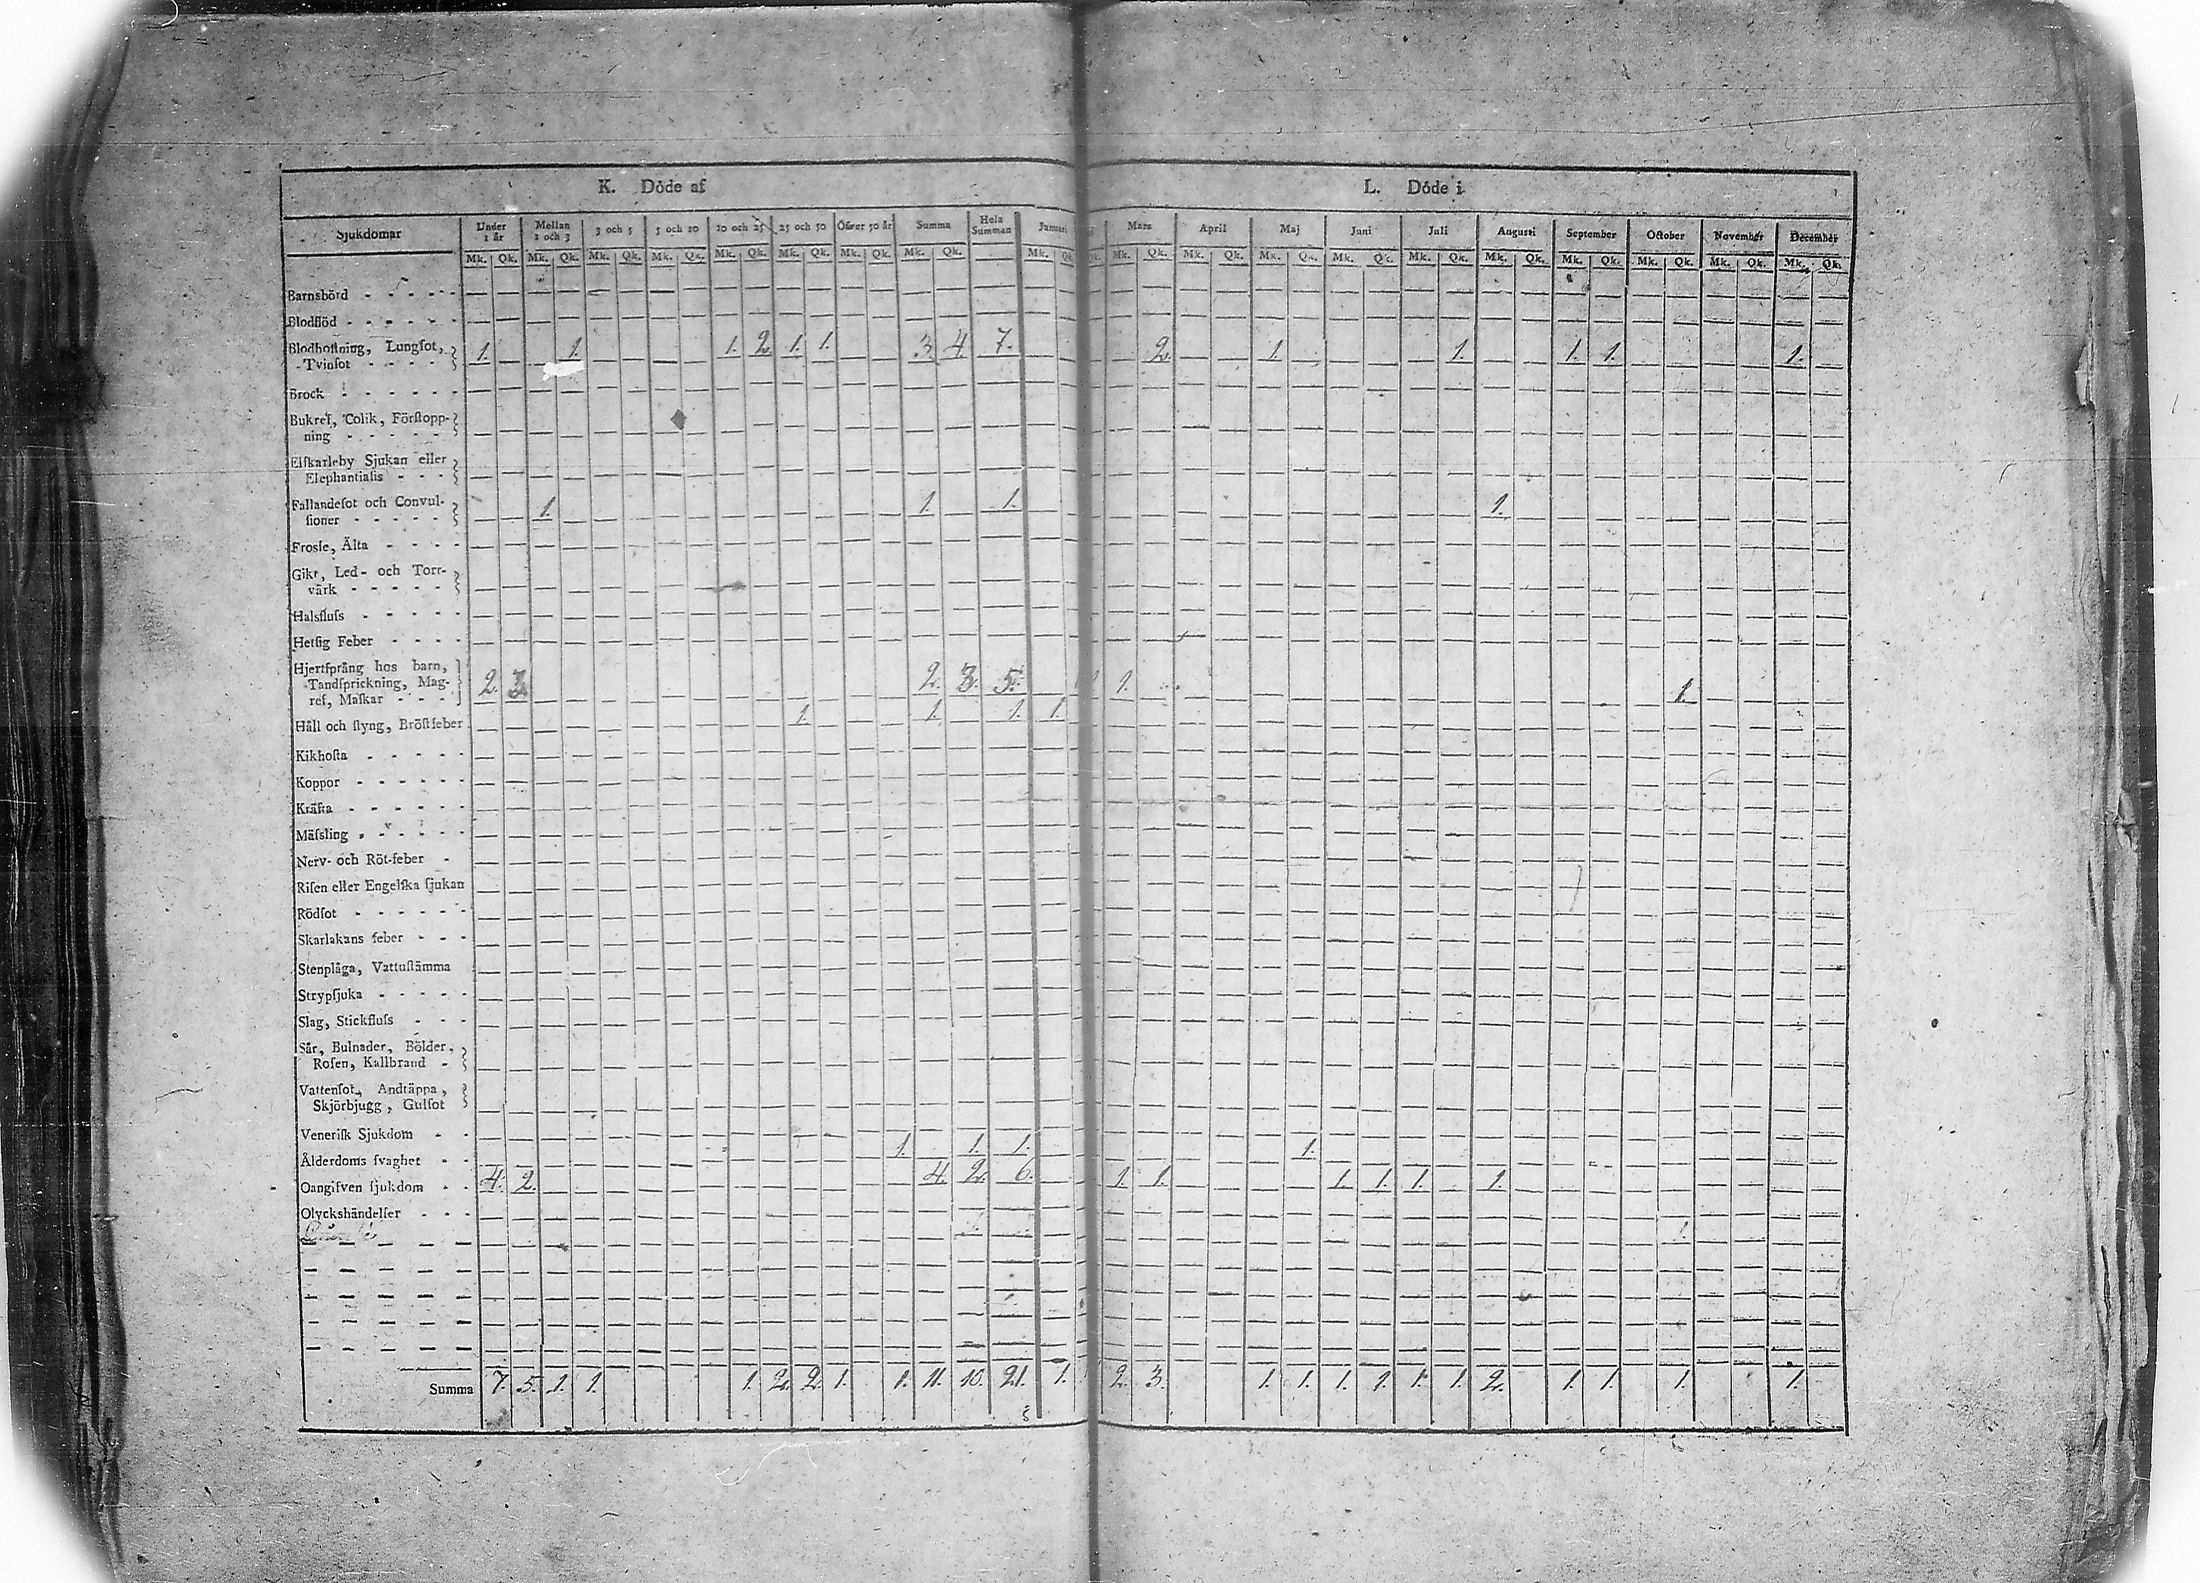 K. Döde af L. Döde i
Sjukdomar Under 1 år Mellan 1 och 3 3 och 5 5 och 10 10 och 25 25 och 50 Öfver 50 år Summa Hela Summan Januari Mars April Maj Juni Juli Augusti September October November December
Mk. Qk. Mk. Qk. Mk. Qk. Mk. Qk. Mk. Qk. Mk. Qk. Mk. Qk. Mk. Qk. Mk. Qk. Mk. Qk. Mk. Qk. Mk. Qk. Mk. Qk. Mk. Qk. Mk. Qk. Mk. Qk. Mk. Qk. Mk. Qk. Mk. Qk.
Barnsbörd
Blodflöd
Blodhoſtning, Lungſot,
Tvinſot 1. 1. 1. 2. 1. 1. 3. 4. 7. 2. 1. 1. 1. 1. 1.
Brock
Bukref, Colik, Förſtopp-
ning
Elſkarleby Sjukan eller
Elephantiaſis
Fallandeſot och Convul-
ſioner 1. 1. 1. 1.
Frosſe, Älta
Gikt, Led- och Torr-
värk
Halsfluſs
Hetſig Feber
Hjertſprång hos barn,
Tandſprickning, Mag-
ref, Maſkar 2. 3. 2. 3. 5. 1. 1.
Håll och ſtyng, Bröſtfeber 1. 1. 1. 1.
Kikhoſta
Koppor
Kräfta
Mäſsling
Nerv- och Röt-feber
Riſen eller Engelſka ſjukan
Rödſot
Skarlakans feber
Stenplåga, Vattuſtämma
Strypſjuka
Slag, Stickfluſs
Sår, Bulnader, Bölder,
Roſen, Kallbrand
Vattenſot, Andtäppa,
Skjörbjugg, Gulſot
Veneriſk Sjukdom
Ålderdoms ſvaghet 1. 1. 1. 1.
Oangifven ſjukdom 4. 2. 4. 2. 6. 1. 1. 1. 1. 1. 1.
Olyckshändelſer
Summa 7. 5. 1. 1. 1. 2. 2. 1. 1. 11. 10. 21. 1. 2. 3. 1. 1. 1. 1. 1. 1. 2. 1. 1. 1. 1.